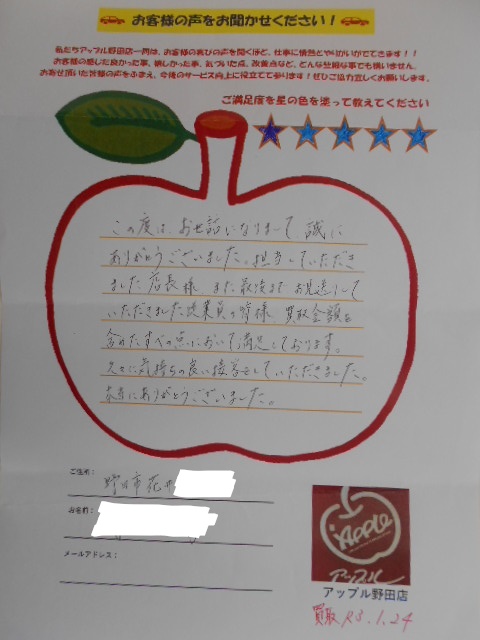 お客様の声をお聞かせください！
私たちアップル野田店一同は、お客様の喜びの声を聞くほど、仕事に情熱とやりがいがでてきます！！
お客様の感じた良かった事、嬉しかった事、気づいた点、改善点など、どんな些細な事でも構いません。
お寄せ頂いた皆様の声をふまえ、今後のサービス向上に役立てて参ります！ぜひご協力宜しくお願いします。
ご満足度を星の色を塗って教えてください
この度は、お世話になりまして、誠に
ありがとうございました。担当していただき
ました店長様、また最後までお見送りして
いただきました従業員の皆様、買取金額を
含めたすべての点において満足しております。
久々に気持ちの良い接客をしていただきました。
本当にありがとうございました。
ご住所：
野田市花井
お名前：
メールアドレス：
Apple
アップル
アップル野田店
買取 R3.1.24